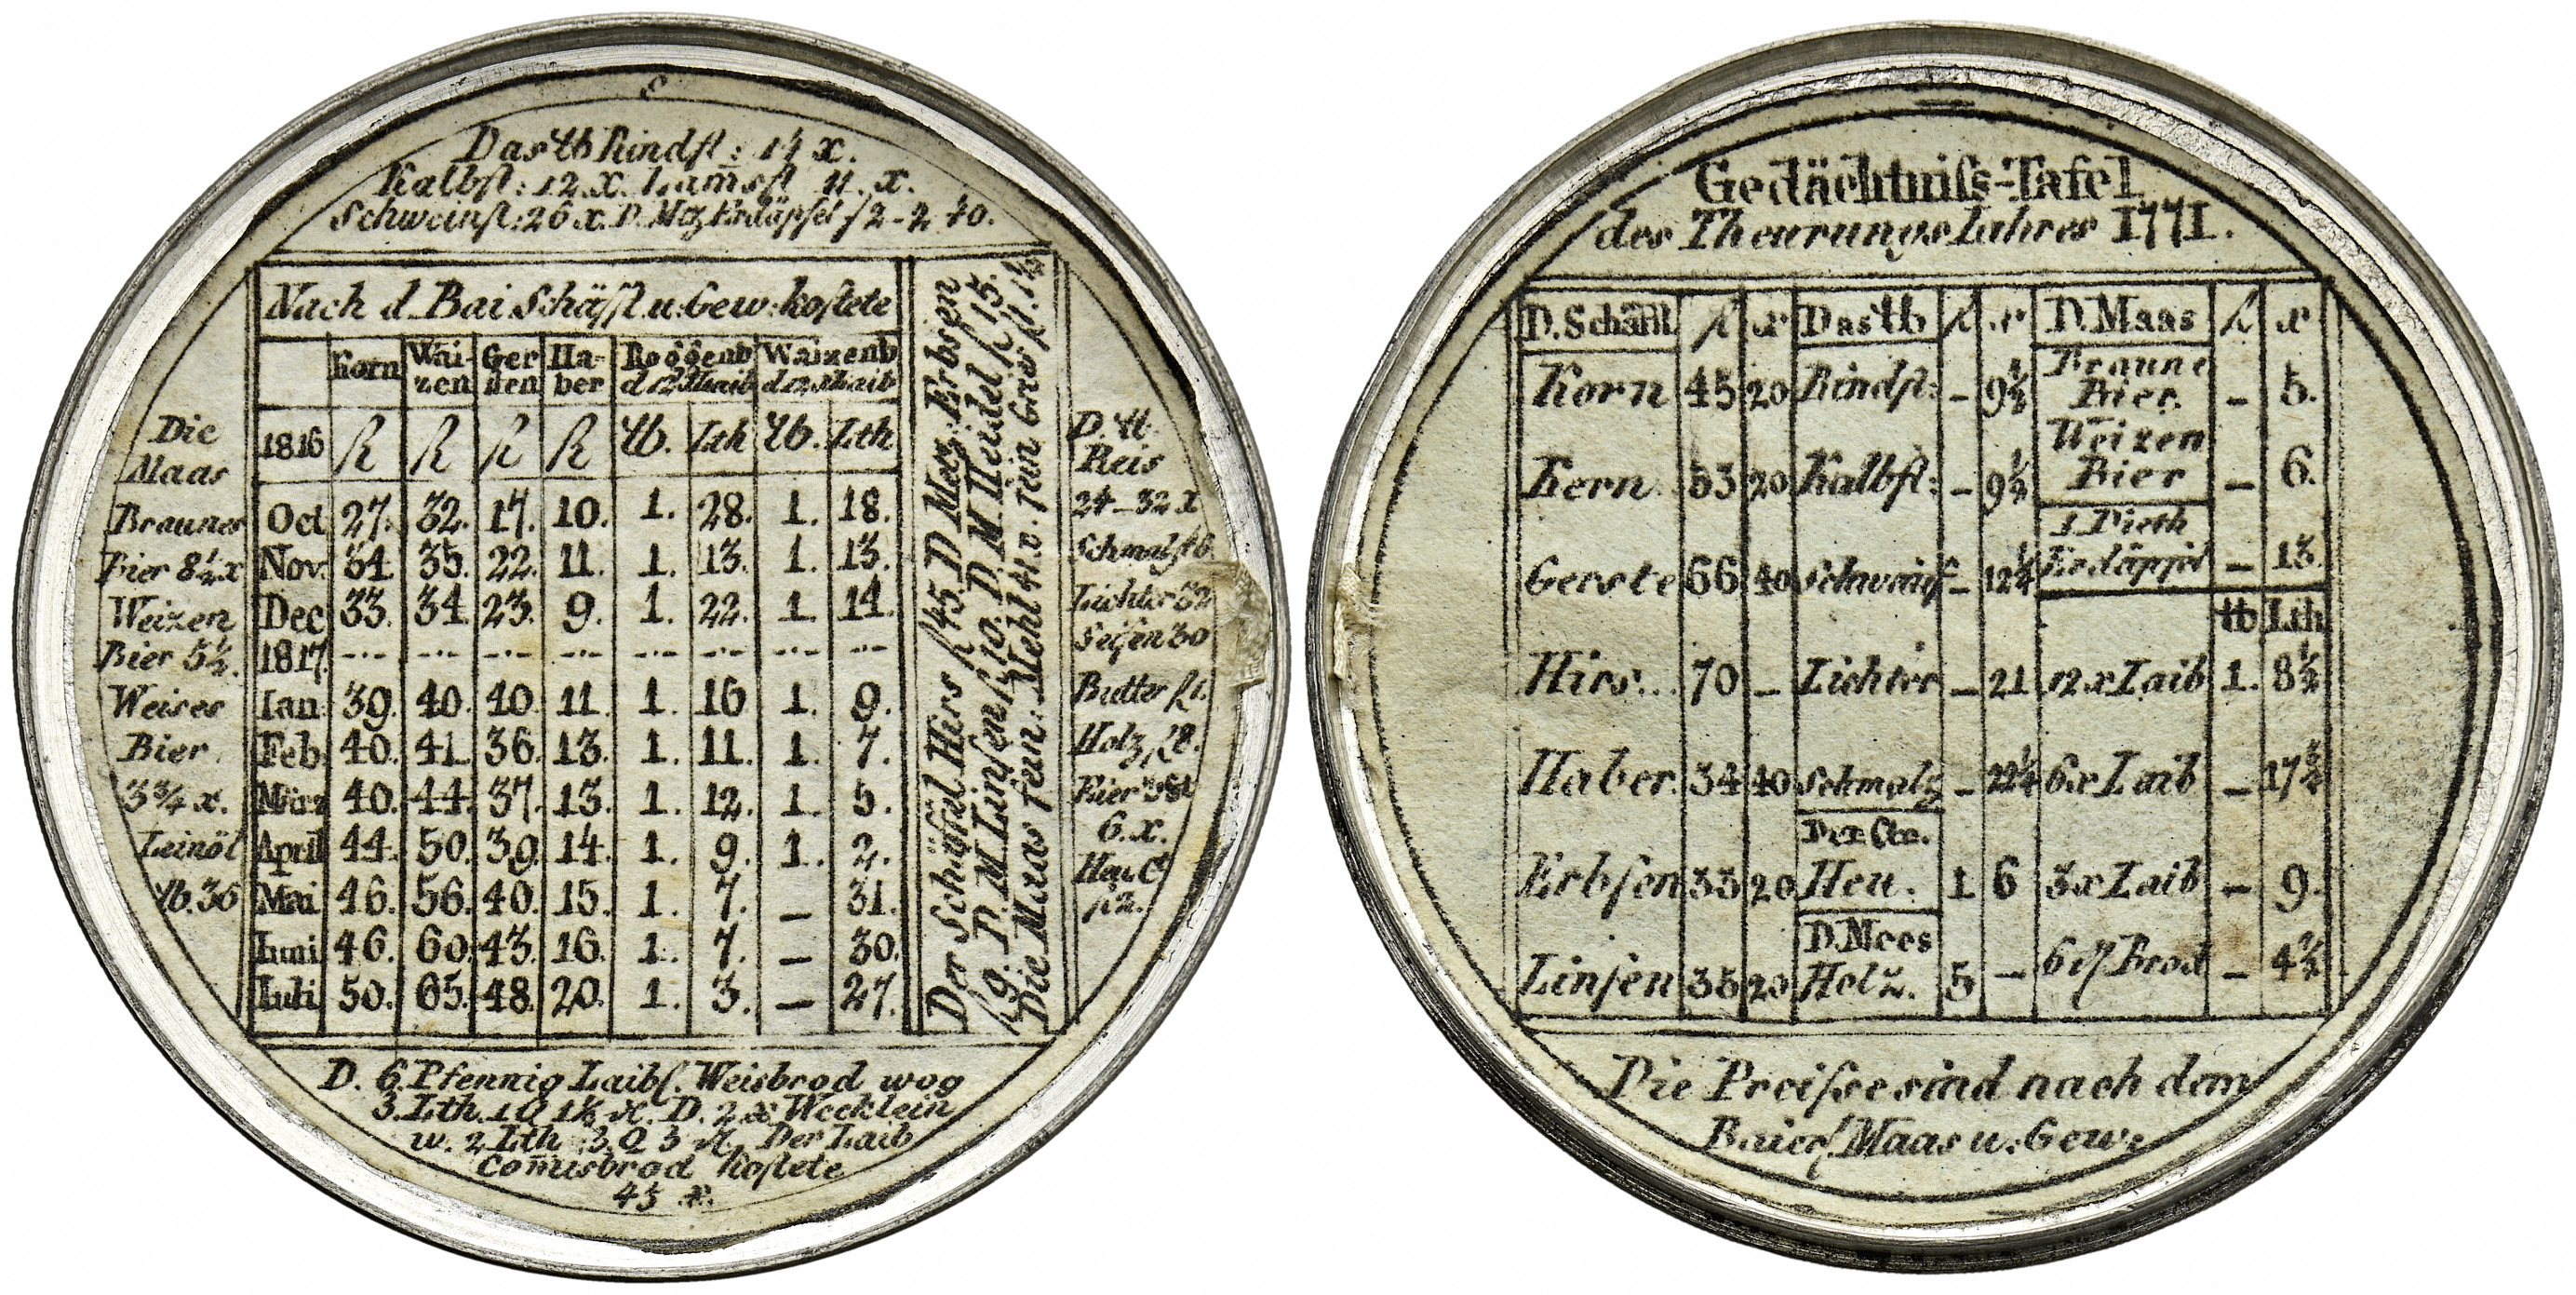 8
Das ℔ Rindfl: 14 x.
Kalbfl: 12 x. Lam̄sfl 11. x.
Schweinfl: 26 x. D. Mtz Erdäpfel f 2-2 40.
Nach d Bai Schäffl. u: Gew: kostete
Korn Wai- zen Ger sten Ha- ber Roggenb d 12 x Laib Waizenb d 12 x Laib
1816 fl fl fl fl ℔. Lth ℔. Lth
Oct 27. 32. 17. 10. 1. 28. 1. 18.
Nov. 34. 35. 22. 11. 1. 13. 1. 13.
Dec 33. 34. 23. 9. 1. 22. 1. 14.
1817.
Ian 39. 40. 40. 11. 1. 16 1. 9.
Feb. 40. 41. 36. 13. 1. 11. 1. 7.
März 40. 44. 37. 13. 1. 12. 1. 5.
April 44. 50. 39. 14. 1. 9. 1. 2.
Mai 46. 56. 40. 15. 1. 7. – 31.
Iuni 46. 60. 43. 16. 1. 7. – 30.
Iuli 50. 65. 48. 20. 1. 3. – 27.
Die
Maas
Braunes
Bier 8½ x
Weizen
Bier 5½.
Weises
Bier
3¾ x.
Leinöl
℔. 36
Der Schäffel Hirs fl 45. D Mez. Erbsen
fl 9. D. M. Linsen fl 10. D. M. Heidel fl 15.
Die Maas Fein: Mehl 41. x. Fein Gris fl. 1½
D. ℔.
Reis
24–32 x
Schmalz fl 6
Lichter 32
Seifen 30
Butter fl 1.
Holz fl 8.
Eier 3 St
6. x.
Heu Ct
fl 2.
D. 6. Pfennig Laibl. Weisbrod wog
3. Lth. 1 Q 1½ D. 2 x Wecklein
w. 2 Lth 3. Q 3 Der Laib
Com̄isbrod kostete
45 x.
Gedächtniſs-Tafel
des Theurungs Iahres 1771.
D. Schäffl. fl x Das ℔ fl x D. Maas fl x
Korn 45 20 Rindfl: – 9½ Braune Bier. – 5.
Kern 53 20 Kalbfl: – 9½ Weizen Bier – 6.
Gerste 66 40 Schweinfl – 12¼ 1. Vierth Erdäppfel – 13.
℔ Lth
Hirs... 70 – Lichter – 21 12 x Laib 1. 8½
Haber. 34 40 Schmalz – 22¼ 6 x Laib – 17¾
Der Ctr.
Erbsen 33 20 Heu. 1 6 3 x Laib – 9.
D. Mees
Linsen 35 20 Holz. 5 – 6 Brod – 4½
Die Preiſse sind nach dem
Baier. Maas u: Gew: